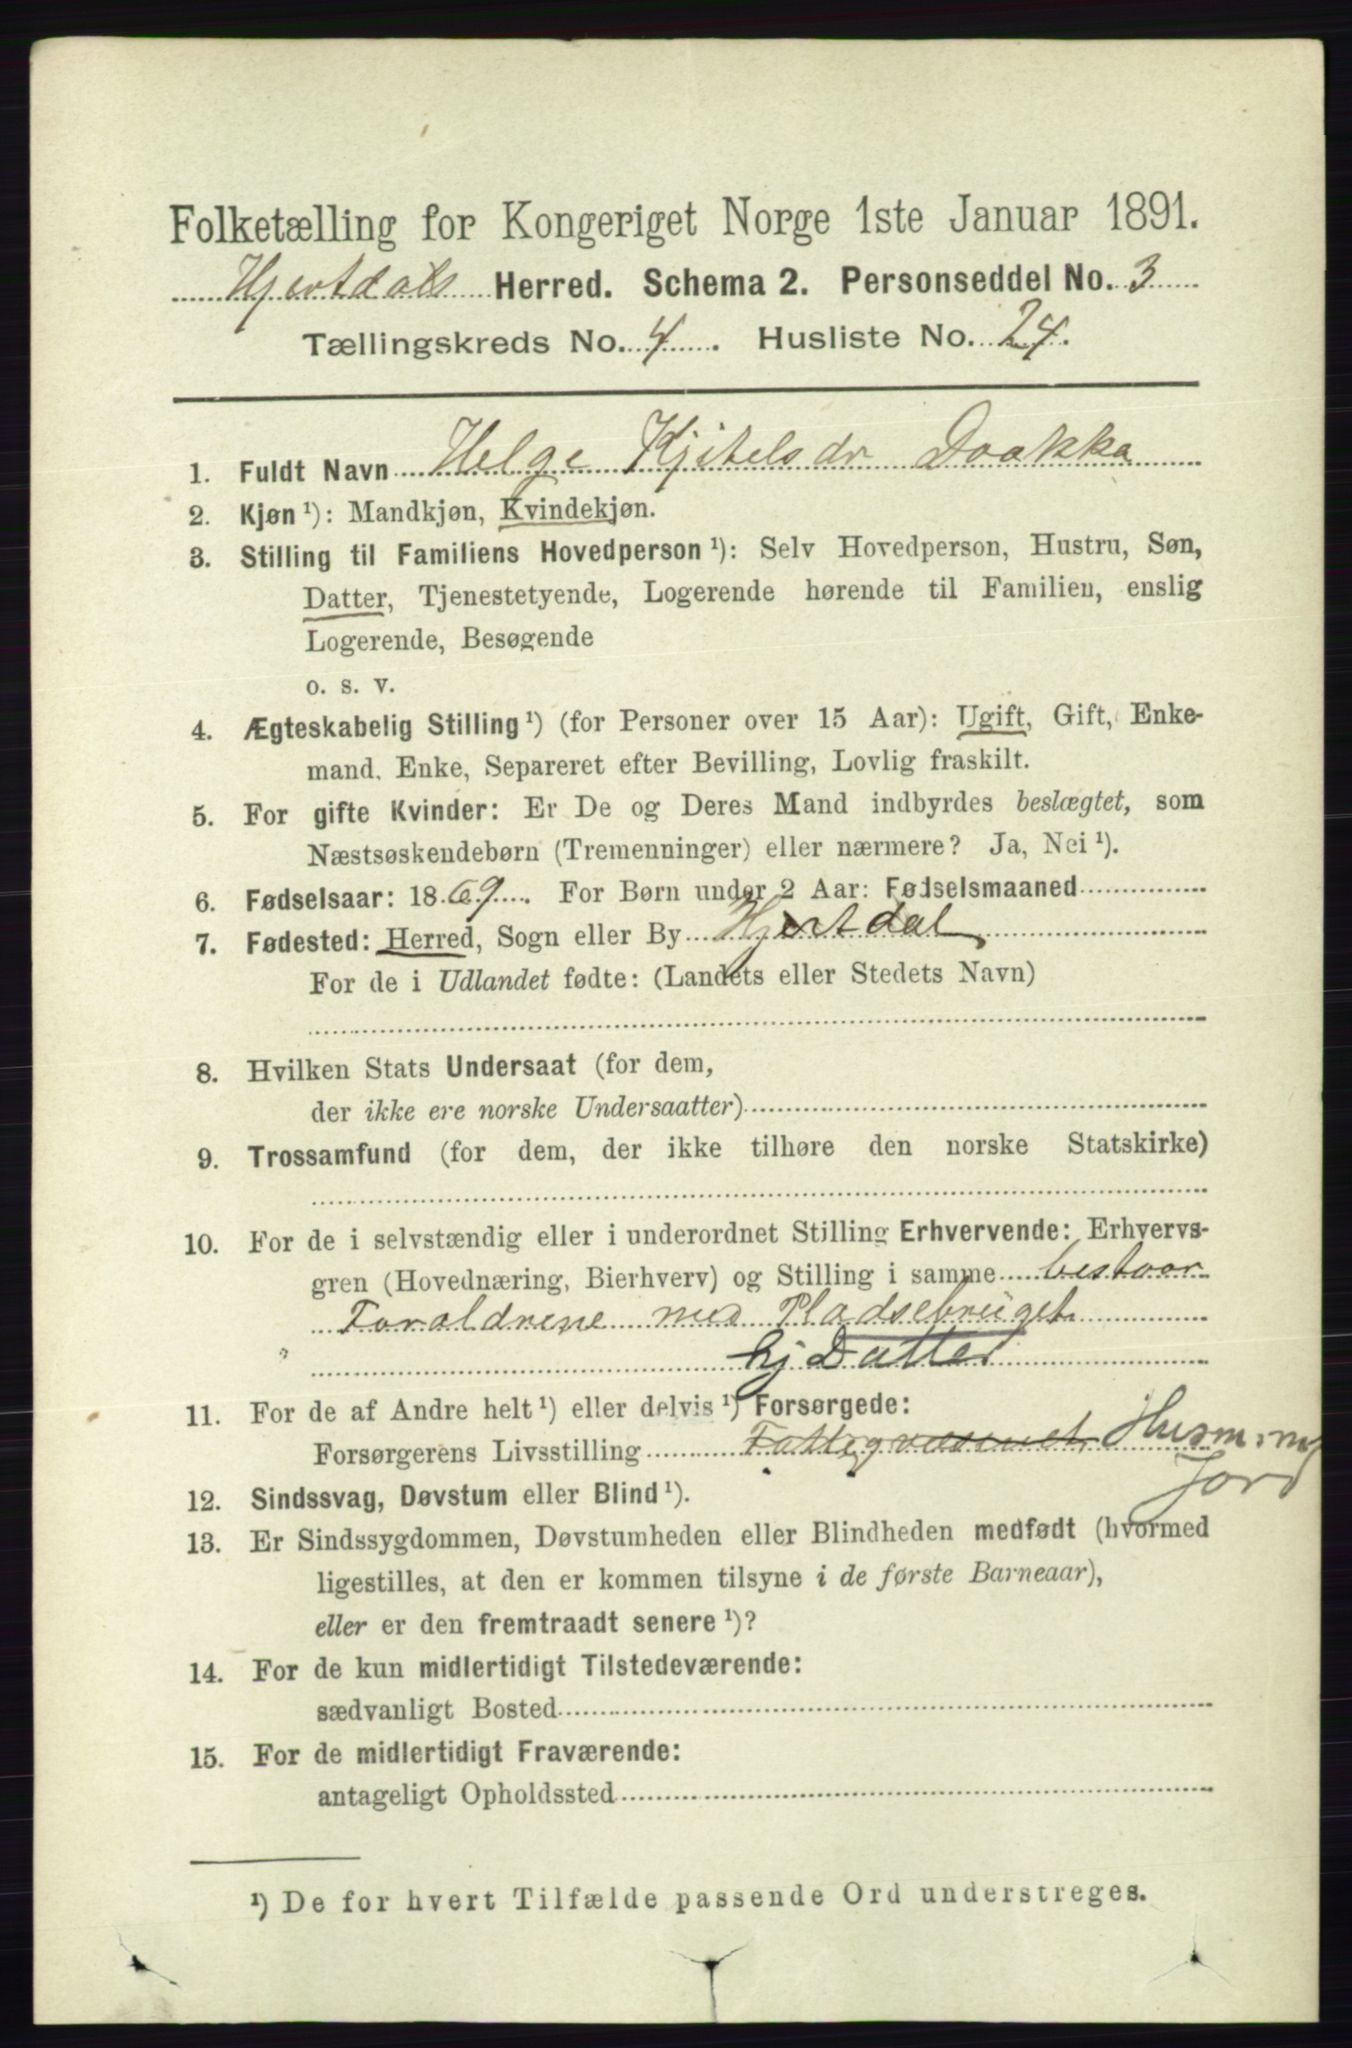 Folketælling for Kongeriget Norge 1ste Januar 1891.
Hjertdals Herred. Schema 2. Personseddel No. 3
Tællingskreds No. 4. Husliste No. 24.
1. Fuldt Navn Helge Kjitelsdr Daakka
2. Kjøn ¹): Mandkjøn, Kvindekjøn.
3. Stilling til Familiens Hovedperson ¹): Selv Hovedperson, Hustru, Søn,
Datter, Tjenestetyende, Logerende hørende til Familien, enslig
Logerende, Besøgende
o. s. v.
4. Ægteskabelig Stilling ¹) (for Personer over 15 Aar): Ugift, Gift, Enke-
mand, Enke, Separeret efter Bevilling, Lovlig fraskilt.
5. For gifte Kvinder: Er De og Deres Mand indbyrdes beslægtet, som
Næstsøskendebørn (Tremenninger) eller nærmere? Ja, Nei ¹).
6. Fødselsaar: 1869. For Børn under 2 Aar: Fødselsmaaned
7. Fødested: Herred, Sogn eller By Hjertdal
For de i Udlandet fødte: (Landets eller Stedets Navn)
8. Hvilken Stats Undersaat (for dem,
der ikke ere norske Undersaatter)
9. Trossamfund (for dem, der ikke tilhøre den norske Statskirke)
10. For de i selvstændig eller i underordnet Stilling Erhvervende: Erhvervs-
gren (Hovednæring, Bierhverv) og Stilling i samme bestaar
Foraldrene med Pladsebruget
hj Datter
11. For de af Andre helt ¹) eller delvis ¹) Forsørgede:
Forsørgerens Livsstilling Fattigvæsenet Husm. m
Jord
12. Sindssvag, Døvstum eller Blind ¹).
13. Er Sindssygdommen, Døvstumheden eller Blindheden medfødt (hvormed
ligestilles, at den er kommen tilsyne i de første Barneaar),
eller er den fremtraadt senere ¹)?
14. For de kun midlertidigt Tilstedeværende:
sædvanligt Bosted
15. For de midlertidigt Fraværende:
antageligt Opholdssted
¹) De for hvert Tilfælde passende Ord understreges.